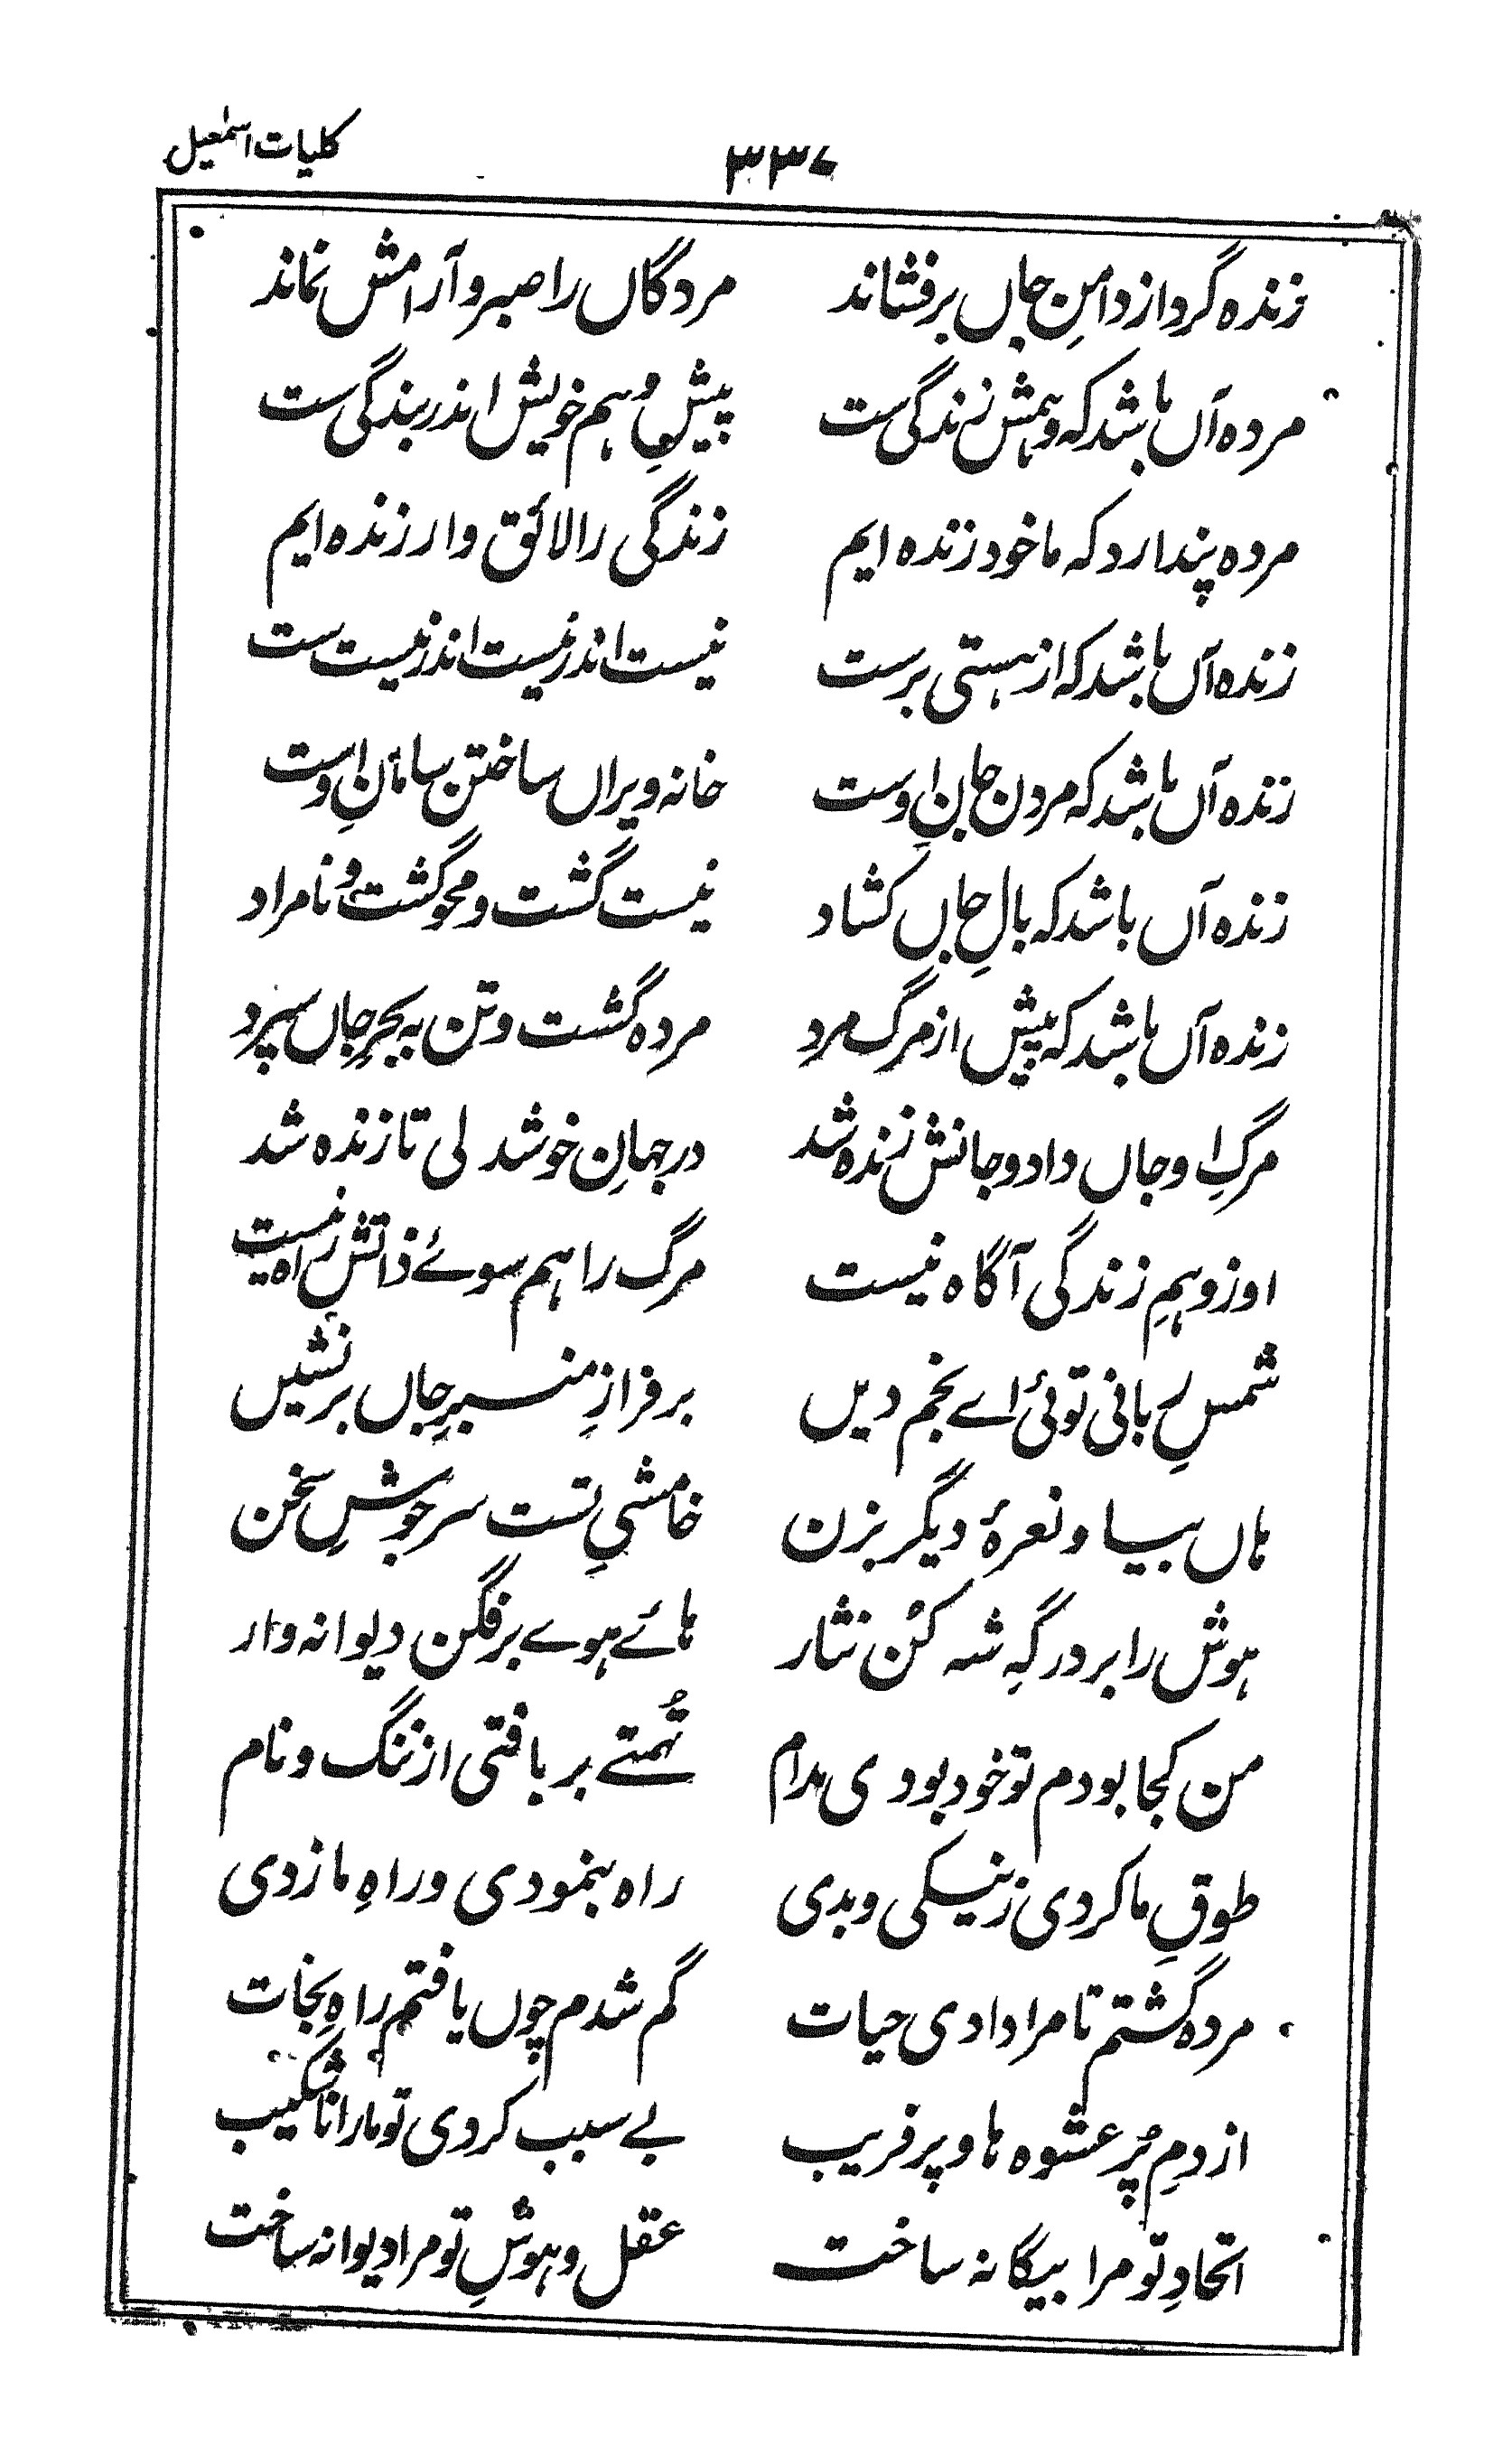 کلیات اسمٰعیل
۳۳۷
زندہ گرد از دامنِ جاں برفشاند مردگاں را صبر و آرامش نماند
مردہ آں باشد کہ وہمش زندگی ست پیشِ وہم خویش اندر بندگی ست
مردہ پندارد کہ ما خود زندہ ایم زندگی را لائق و ارزندہ ایم
زندہ آں باشد کہ از ہستی برست نیست اندر نیست اندر نیست ست
زندہ آں باشد کہ مردن جانِ اوست خانہ ویراں ساختن سامانِ اوست
زندہ آں باشد کہ بالِ جاں کشاد نیست گشت و محو گشت و نامراد
زندہ آں باشد کہ پیش از مرگ مرد مردہ گشت و تن بہ بحرِ جاں سپرد
مرگِ او جاں داد و جانش زندہ شد در جہانِ خوشدلی تا زندہ شد
او ز وہمِ زندگی آگاہ نیست مرگ را ہم سوئے ذاتش راہ نیست
شمسِ ربانی توئی اے نجم دیں بر فرازِ منبرِ جاں بر نشیں
ہاں بیا و نعرۂ دیگر بزن خامشیِ تست سرجوشِ سخن
ہوش را بر درگہِ شہ کُن نثار ہائے ہوے برفگن دیوانہ وار
من کجا بودم تو خود بودی مدام تُہمتے بر بافتی از ننگ و نام
طوقِ ما کردی ز نیکی و بدی راہ بنمودی و راہِ ما زدی
مردہ گشتم تا مرا دادی حیات گم شدم چوں یافتم راہِ نجات
از دمِ پُر عشوہ ہا و پر فریب بے سبب کردی تو ما را ناشکیب
اتحادِ تو مرا بیگانہ ساخت عقل و ہوشِ تو مرا دیوانہ ساخت